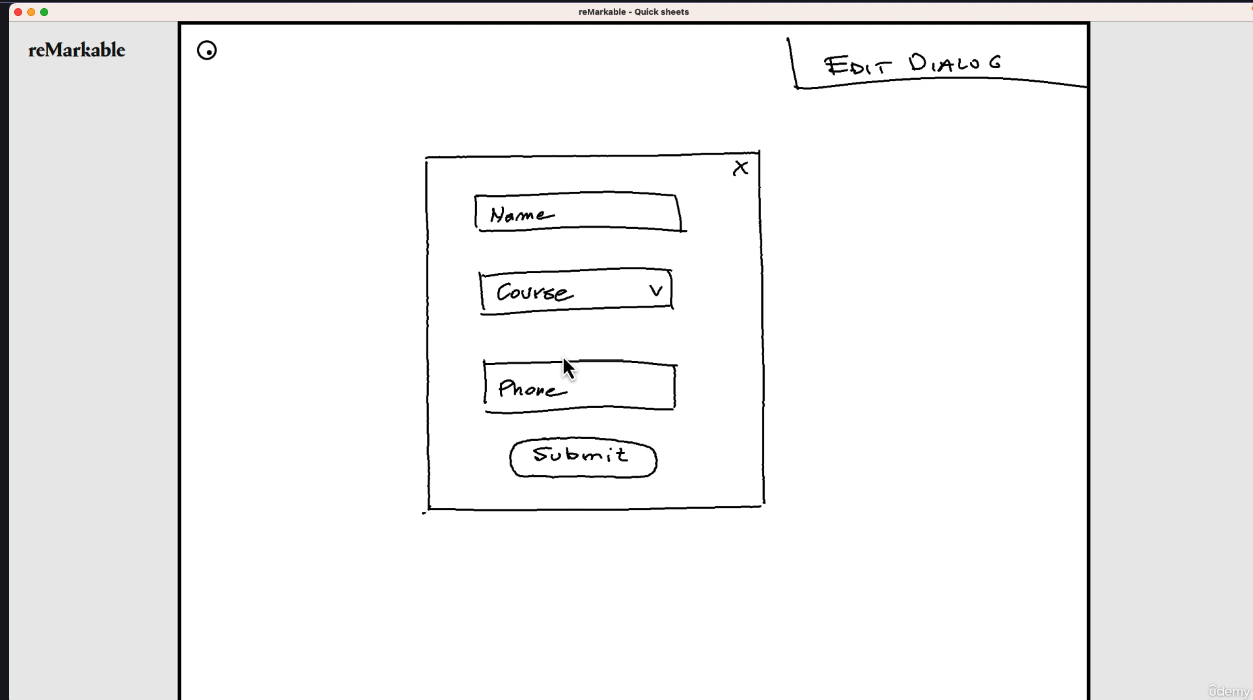 reMarkable - Quick sheets
reMarkable
EDIT DIALOG
X
Name
Course v
Phone
Submit
ûdemy